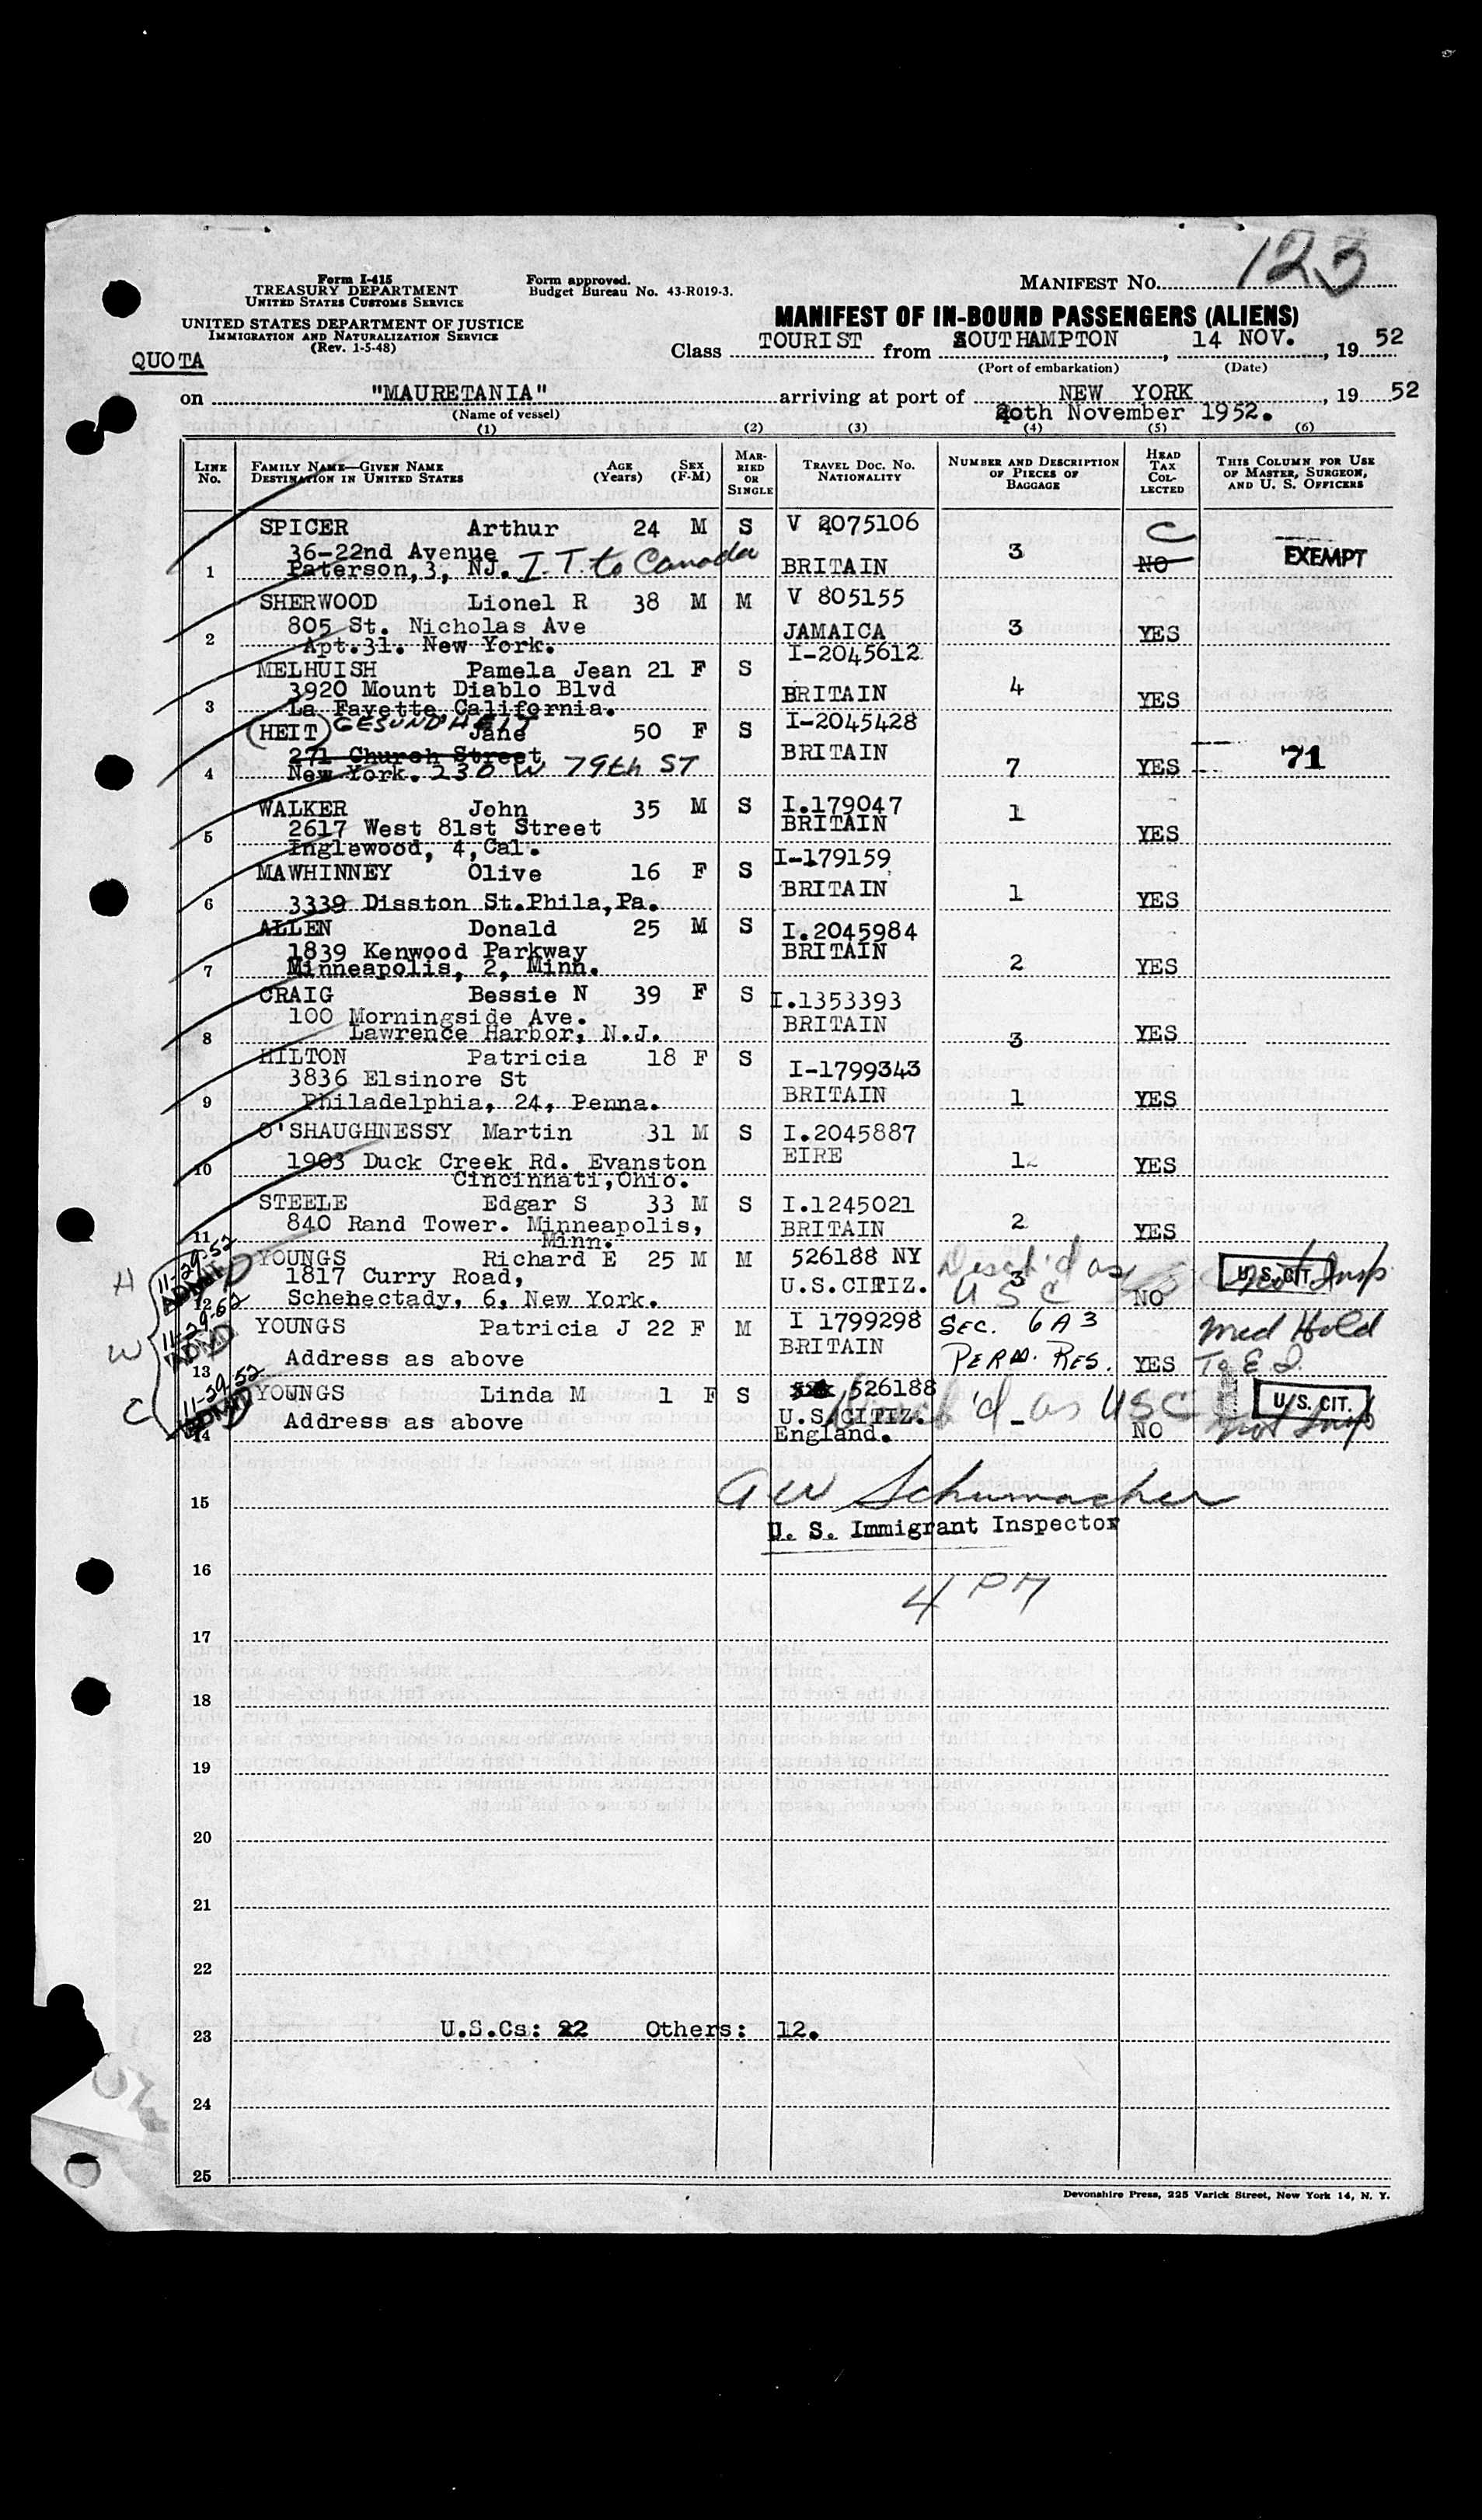 123
Form I-415
TREASURY DEPARTMENT
UNITED STATES CUSTOMS SERVICE
Form approved.
Budget Bureau No. 43-R019-3.
MANIFEST No.
UNITED STATES DEPARTMENT OF JUSTICE
IMMIGRATION AND NATURALIZATION SERVICE
(Rev. 1-5-48)
MANIFEST OF IN-BOUND PASSENGERS (ALIENS)
QUOTA
Class TOURIST from SOUTHAMPTON, 14 NOV., 19 52
(Port of embarkation) (Date)
on "MAURETANIA" arriving at port of NEW YORK, 19 52
(Name of vessel) 20th November 1952.
(1) (2) (3) (4) (5) (6)
LINE No.
FAMILY NAME—GIVEN NAME
DESTINATION IN UNITED STATES
AGE (Years)
SEX (F-M)
MARRIED OR SINGLE
TRAVEL DOC. NO. NATIONALITY
NUMBER AND DESCRIPTION OF PIECES OF BAGGAGE
HEAD TAX COLLECTED
THIS COLUMN FOR USE OF MASTER, SURGEON, AND U. S. OFFICERS
SPICER Arthur 24 M S V 2075106 C
36-22nd Avenue 3 EXEMPT
1 Paterson, 3, NJ. I.T. to Canada BRITAIN NO
SHERWOOD Lionel R 38 M M V 805155
805 St. Nicholas Ave 3
2 Apt.31. New York. JAMAICA YES
MELHUISH Pamela Jean 21 F S I-2045612
3920 Mount Diablo Blvd 4
3 La Fayette California. BRITAIN YES
(HEIT) GESUNDHEIT Jane 50 F S I-2045428
271 Church Street BRITAIN
4 New York. 230 W 79th ST 7 YES 71
WALKER John 35 M S I.179047 1
5 2617 West 81st Street BRITAIN YES
Inglewood, 4, Cal.
MAWHINNEY Olive 16 F S I-179159
6 3339 Disston St.Phila,Pa. BRITAIN 1 YES
ALLEN Donald 25 M S I.2045984
1839 Kenwood Parkway BRITAIN
7 Minneapolis, 2, Minn. 2 YES
CRAIG Bessie N 39 F S I.1353393
100 Morningside Ave. BRITAIN
8 Lawrence Harbor, N.J. 3 YES
HILTON Patricia 18 F S I-1799343
3836 Elsinore St
9 Philadelphia, 24, Penna. BRITAIN 1 YES
O'SHAUGHNESSY Martin 31 M S I.2045887
10 1903 Duck Creek Rd. Evanston EIRE 12 YES
Cincinnati,Ohio.
STEELE Edgar S 33 M S I.1245021
840 Rand Tower. Minneapolis, BRITAIN 2 YES
11 Minn.
H 11-29-52 YOUNGS Richard E 25 M M 526188 NY Desch'd as U.S. CIT. Not Insp
ADMTD 1817 Curry Road, U.S.CITIZ. 3 USC
12 Schenectady, 6, New York. NO
W 11-29-52 YOUNGS Patricia J 22 F M I 1799298 SEC. 6A3 Med Hold
ADMD BRITAIN
13 Address as above PERM. RES. YES To E I.
C 11-29-52 YOUNGS Linda M 1 F S 526188 Desch'd as USC U.S. CIT.
ADMTD Address as above U.S.CITIZ. Not Insp
14 England. NO
15 A W Schumacher
U. S. Immigrant Inspector
16
4 PM
17
18
19
20
21
22
23 U.S.Cs: 2 Others: 12.
24
25
Devonshire Press, 225 Varick Street, New York 14, N. Y.